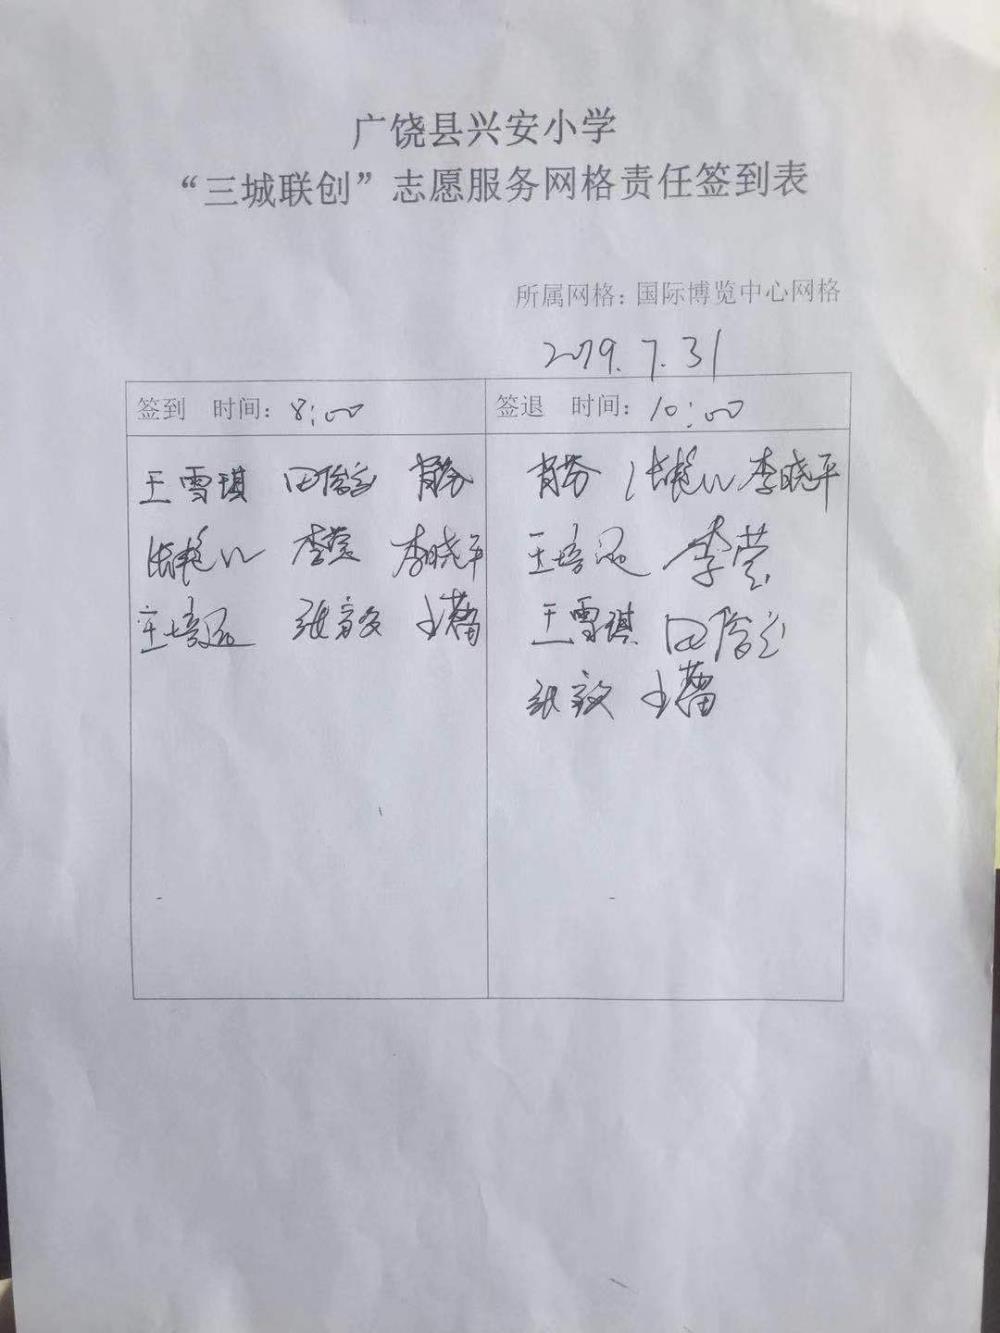 广饶县兴安小学
“三城联创”志愿服务网格责任签到表
所属网格：国际博览中心网格
2019.7.31
签到 时间：8:00
签退 时间：10:00
王雪琪 田俊立 肖芬
李莹 李晓平
王培 张毅 王蕾
肖芬 李晓平
王培 李莹
王雪琪 田俊立
张毅 王蕾